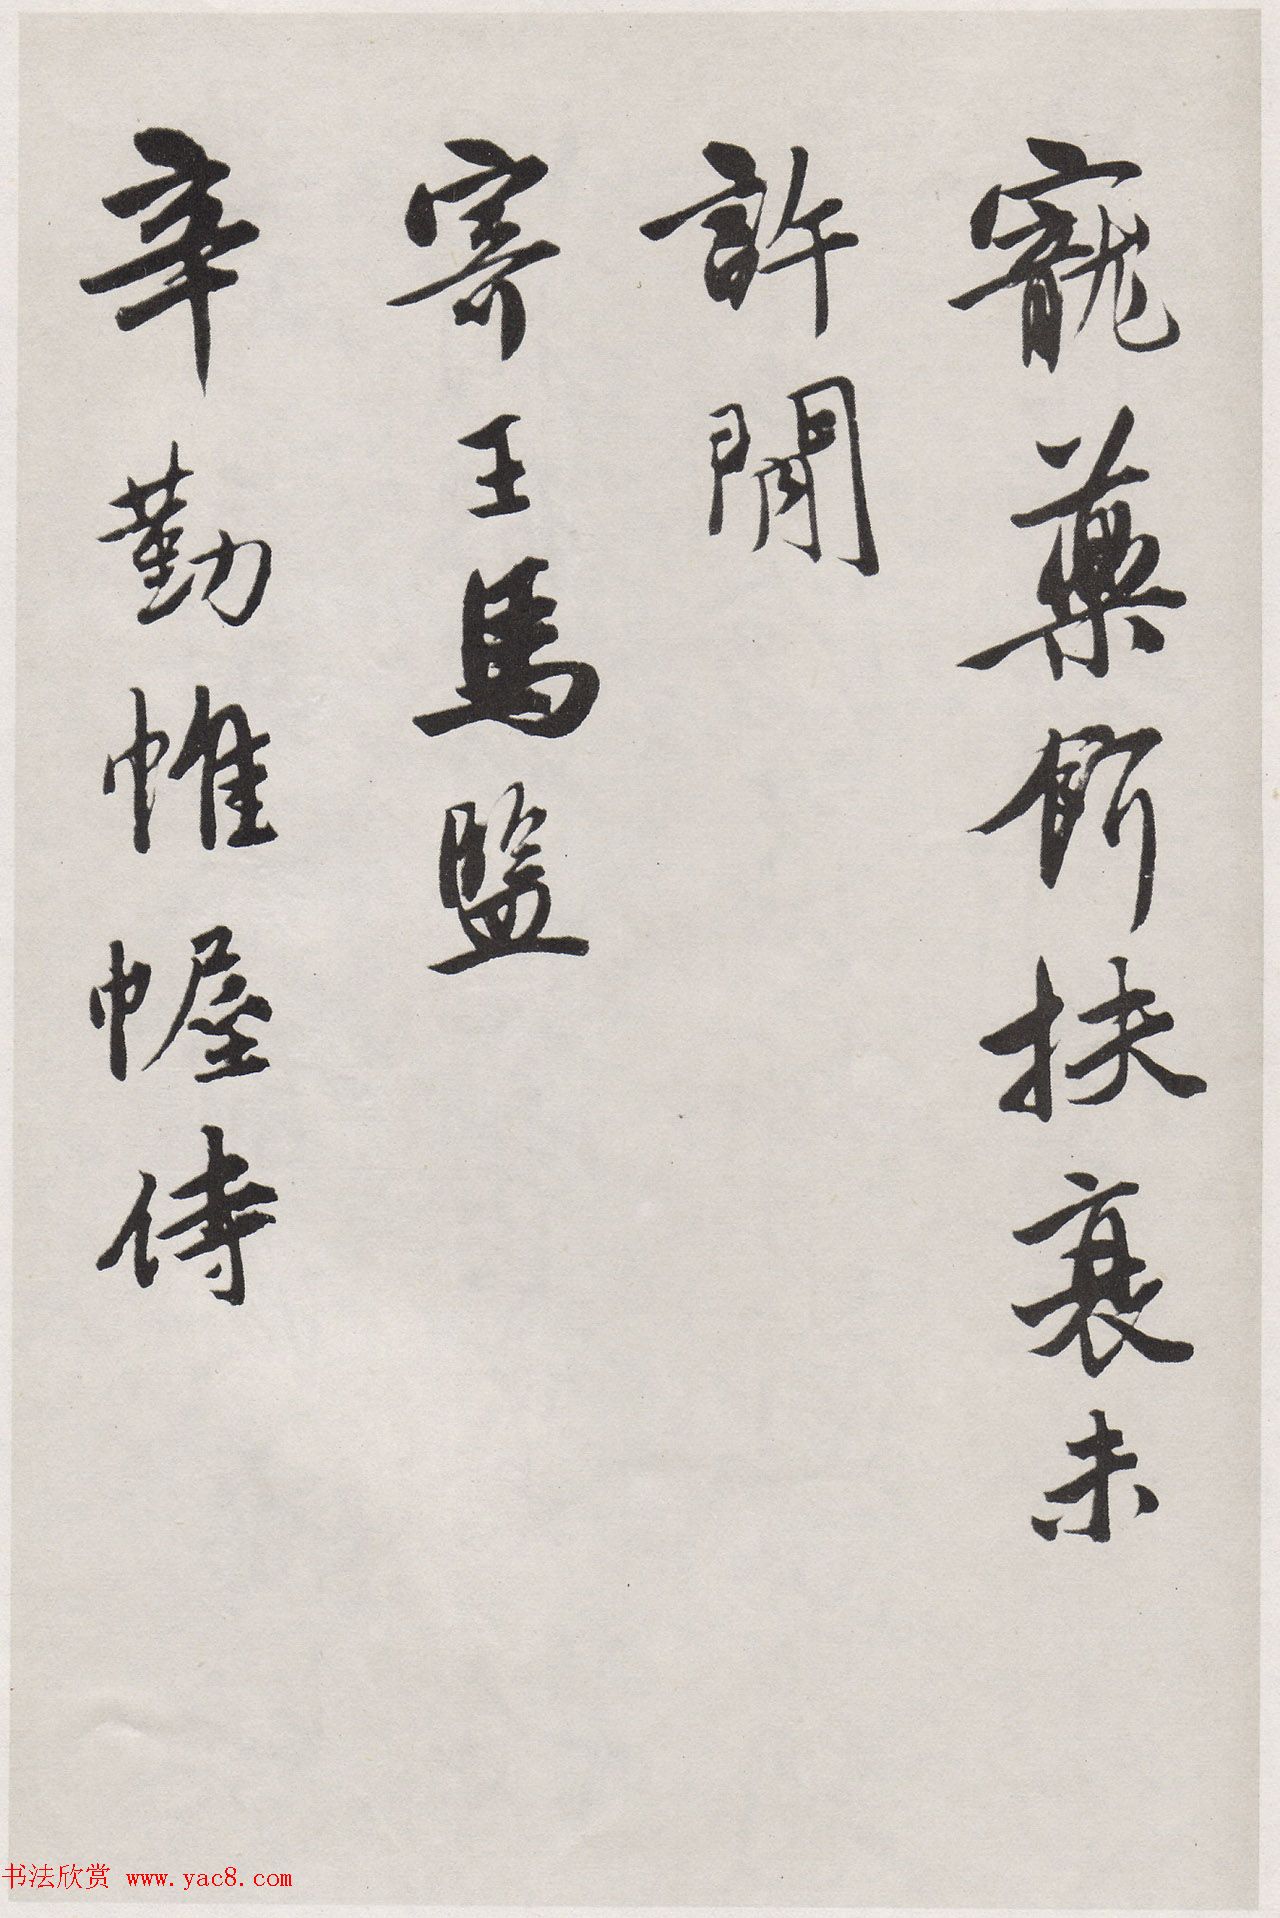 寵藥餌扶衰未
許閒
寄王馬監
辛勤帷幄侍
书法欣赏 www.yac8.com